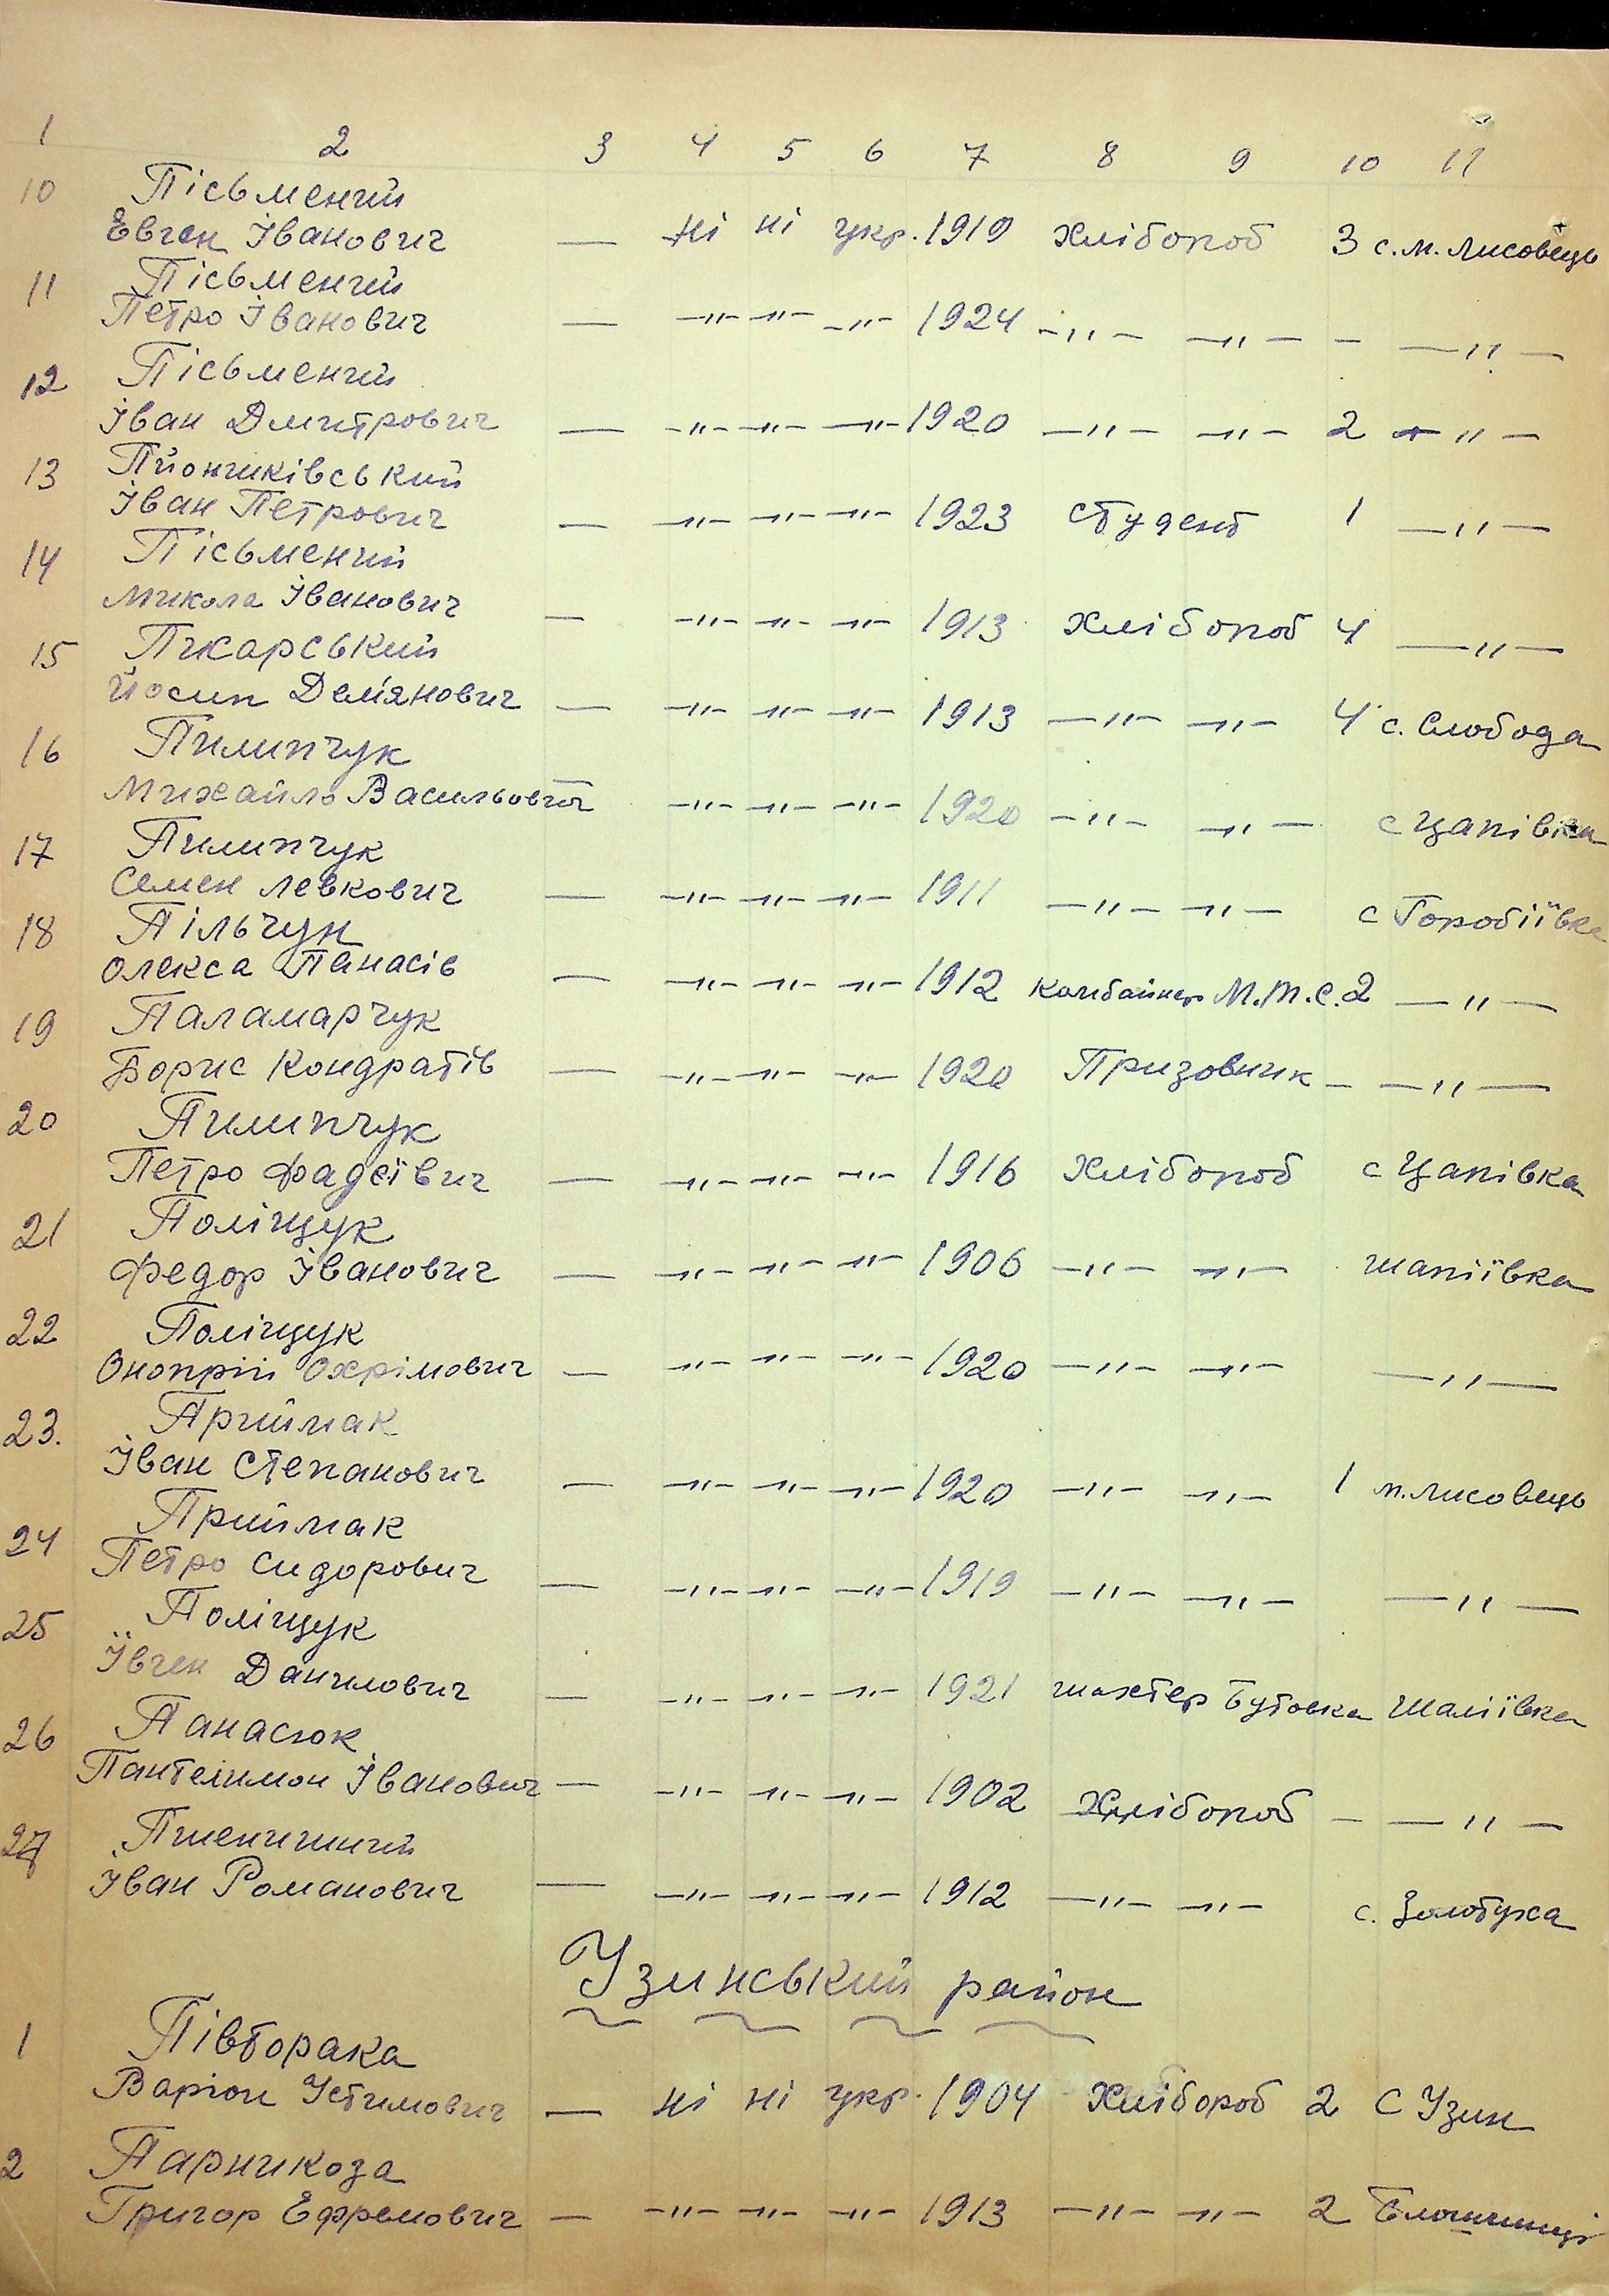 1 2 3 4 5 6 7 8 9 10 11
10 Пісьменний
Евген Іванович — ні ні укр. 1919 хлібороб 3 с. м. Лисовець
11 Пісьменний
Петро Іванович — —"— —"— —"— 1924 —"— —"— — —"—
12 Пісьменний
Іван Дмитрович — —"— —"— —"— 1920 —"— —"— 2 —"—
13 Пйончиківський
Іван Петрович — —"— —"— —"— 1923 студент 1 —"—
14 Пісьменний
Микола Іванович — —"— —"— —"— 1913 хлібороб 4 —"—
15 Пікарський
Йосип Дем'янович — —"— —"— —"— 1913 —"— —"— 4 с. Слобода
16 Пилипчук
Михайло Васильович — —"— —"— —"— 1920 —"— —"— с Цапівка
17 Пилипчук
Семен Левкович — —"— —"— —"— 1911 —"— —"— с Горобіївка
18 Пільчук
Олекса Панасів — —"— —"— —"— 1912 комбайнер М.Т.С. 2 —"—
19 Паламарчук
Борис Кондратів — —"— —"— —"— 1920 Призовник — —"—
20 Пилипчук
Петро Фадеївич — —"— —"— —"— 1916 хлібороб с Цапівка
21 Поліщук
Федор Іванович — —"— —"— —"— 1906 —"— —"— шапіївка
22 Поліщук
Онопрій Охрімович — —"— —"— —"— 1920 —"— —"— —"—
23. Приймак
Іван Степанович — —"— —"— —"— 1920 —"— —"— 1 м. Лисовець
24 Приймак
Петро Сидорович — —"— —"— —"— 1919 —"— —"— —"—
25 Поліщук
Ївген Данилович — —"— —"— —"— 1921 шахтер Бутовка Шаліївка
26 Панасюк
Пантелимон Іванович — —"— —"— —"— 1902 хлібороб — —"—
27 Пшеничний
Іван Романович — —"— —"— —"— 1912 —"— —"— с. Золотуха
Узинський район
1 Півторака
Варіон Устимович — ні ні укр. 1904 хлібороб 2 С Узин
2 Парникоза
Григор Ефремович — —"— —"— —"— 1913 —"— —"— 2